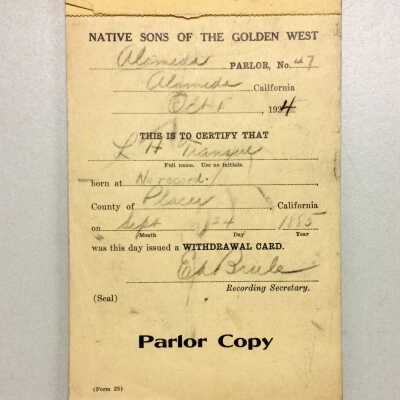 NATIVE SONS OF THE GOLDEN WEST
Alameda PARLOR, No. 47
Alameda, California
Oct 1, 1934
THIS IS TO CERTIFY THAT
L H
Full name. Use no initials.
born at No record.
County of Placer, California
on Sept 24 1885
Month Day Year
was this day issued a WITHDRAWAL CARD.
Ed
Recording Secretary.
(Seal)
Parlor Copy
(Form 25)